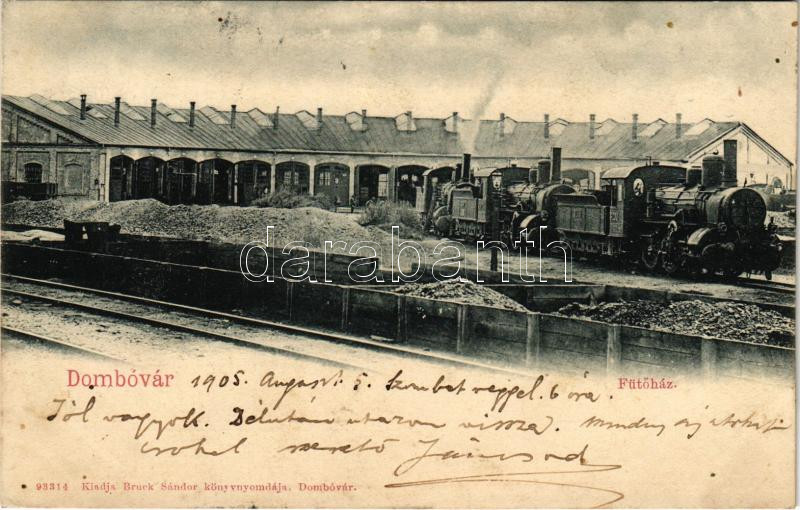 darabanth
Dombóvár 1905. August. 5. Szombat reggel. 6 óra. Fűtőház.
Jól vagyok. Délután utazom vissza. mindny
csókol szerető Jánosod
93314 Kiadja Bruck Sándor könyvnyomdája. Dombóvár.